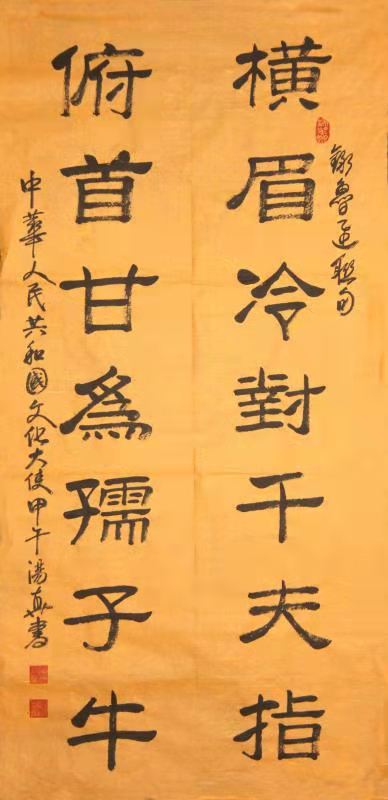 錄魯迅聯句
橫眉冷對千夫指
俯首甘為孺子牛
中華人民共和國文化大使甲午湯真書